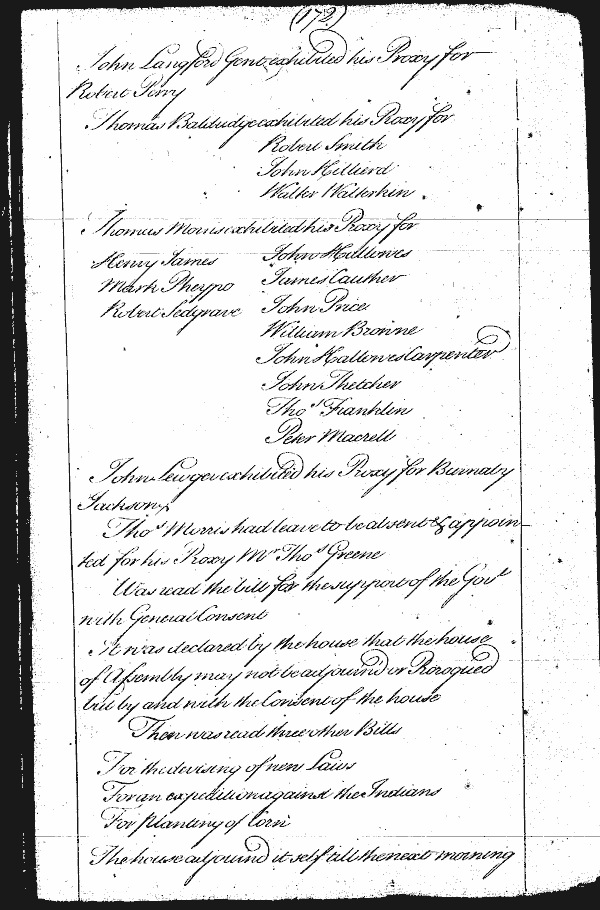 (172)
John Langford Gent exhibited his Proxy for
Robert Perry
Thomas Baldridge exhibited his Proxy for
Robert Smith
John Hilliard
Walter Walterlin
Thomas Morris exhibited his Proxy for
Henry James John Hallowes
Mark Pheypo James Cauther
Robert Sedgrave John Price
William Browne
John Hallowes Carpenter
John Thetcher
Thos Franklin
Peter Macrell
John Lewger exhibited his Proxy for Barnaby
Jackson
Thos Morris had leave to be absent & appoin
ted for his Proxy Mr Thos Greene
Was read the bill for the support of the Govt
with General Consent
It was declared by the house that the house
of Assembly may not be adjourd or Prorogued
but by and with the Consent of the house
Then was read three other Bills
For the devising of new Laws
For an expedition against the Indians
For planting of Corn
The house adjourd it self till the next morning